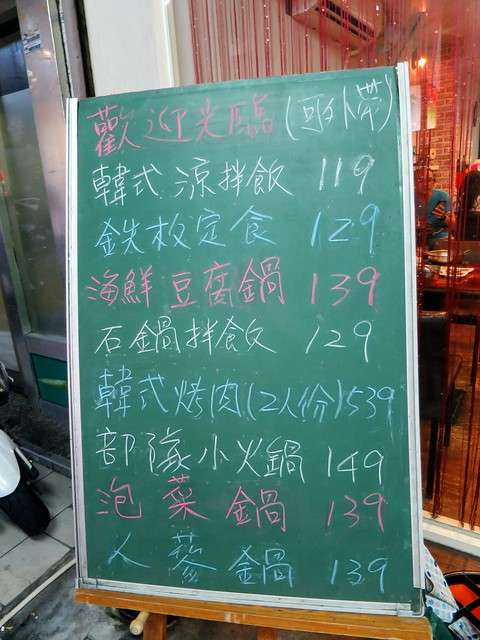 歡迎光臨(可外帶)
韓式涼拌飯 119
鉄板定食 129
海鮮豆腐鍋 139
石鍋拌飯 129
韓式烤肉(2人份)539
部隊小火鍋 149
泡菜鍋 139
人蔘鍋 139